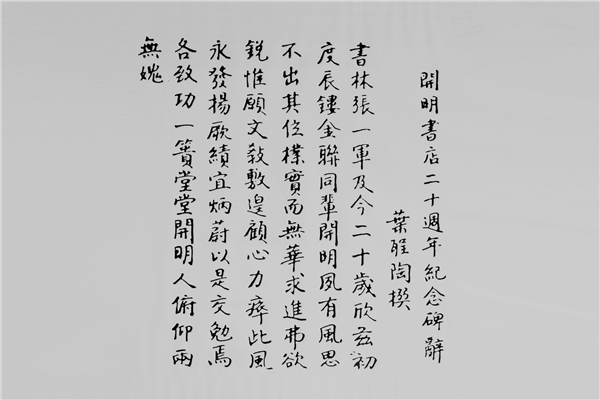 開明書店二十週年紀念碑辭
葉聖陶撰
書林張一軍及今二十歲欣茲初
度辰鏤金聯同輩開明夙有風思
不出其位樸實而無華求進弗欲
銳惟願文敎敷遑顧心力瘁此風
永發揚厥績宜炳蔚以是交勉焉
各致功一簣堂堂開明人俯仰兩
無媿